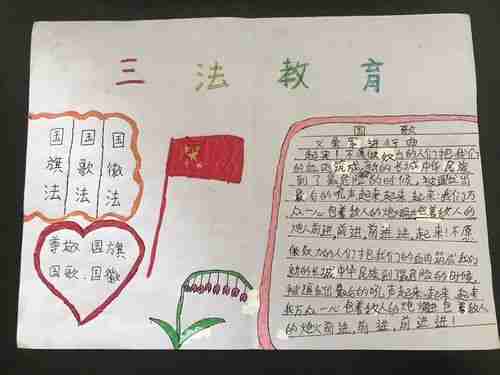 三法教育
国旗法
国歌法
国徽法
尊敬 国旗
国歌、国徽
国 歌
义勇军进行曲
起来!不愿做奴隶的人们!把我们
的血肉筑成新的长城中华民族
到了最危险的时候,被迫着
最后的吼声起来起来 起来!我们万
众一心冒着敌人的炮火冒着敌人的
炮火前进,前进,前进,起来!不愿
做奴 的人们把我们的血肉筑成我们
新的长城中华民族到 危险的时候,
被迫 最后的吼声起来起来 起来
我万众一心冒着敌人的炮火 冒着敌人
的炮火前进,前进,前进进!